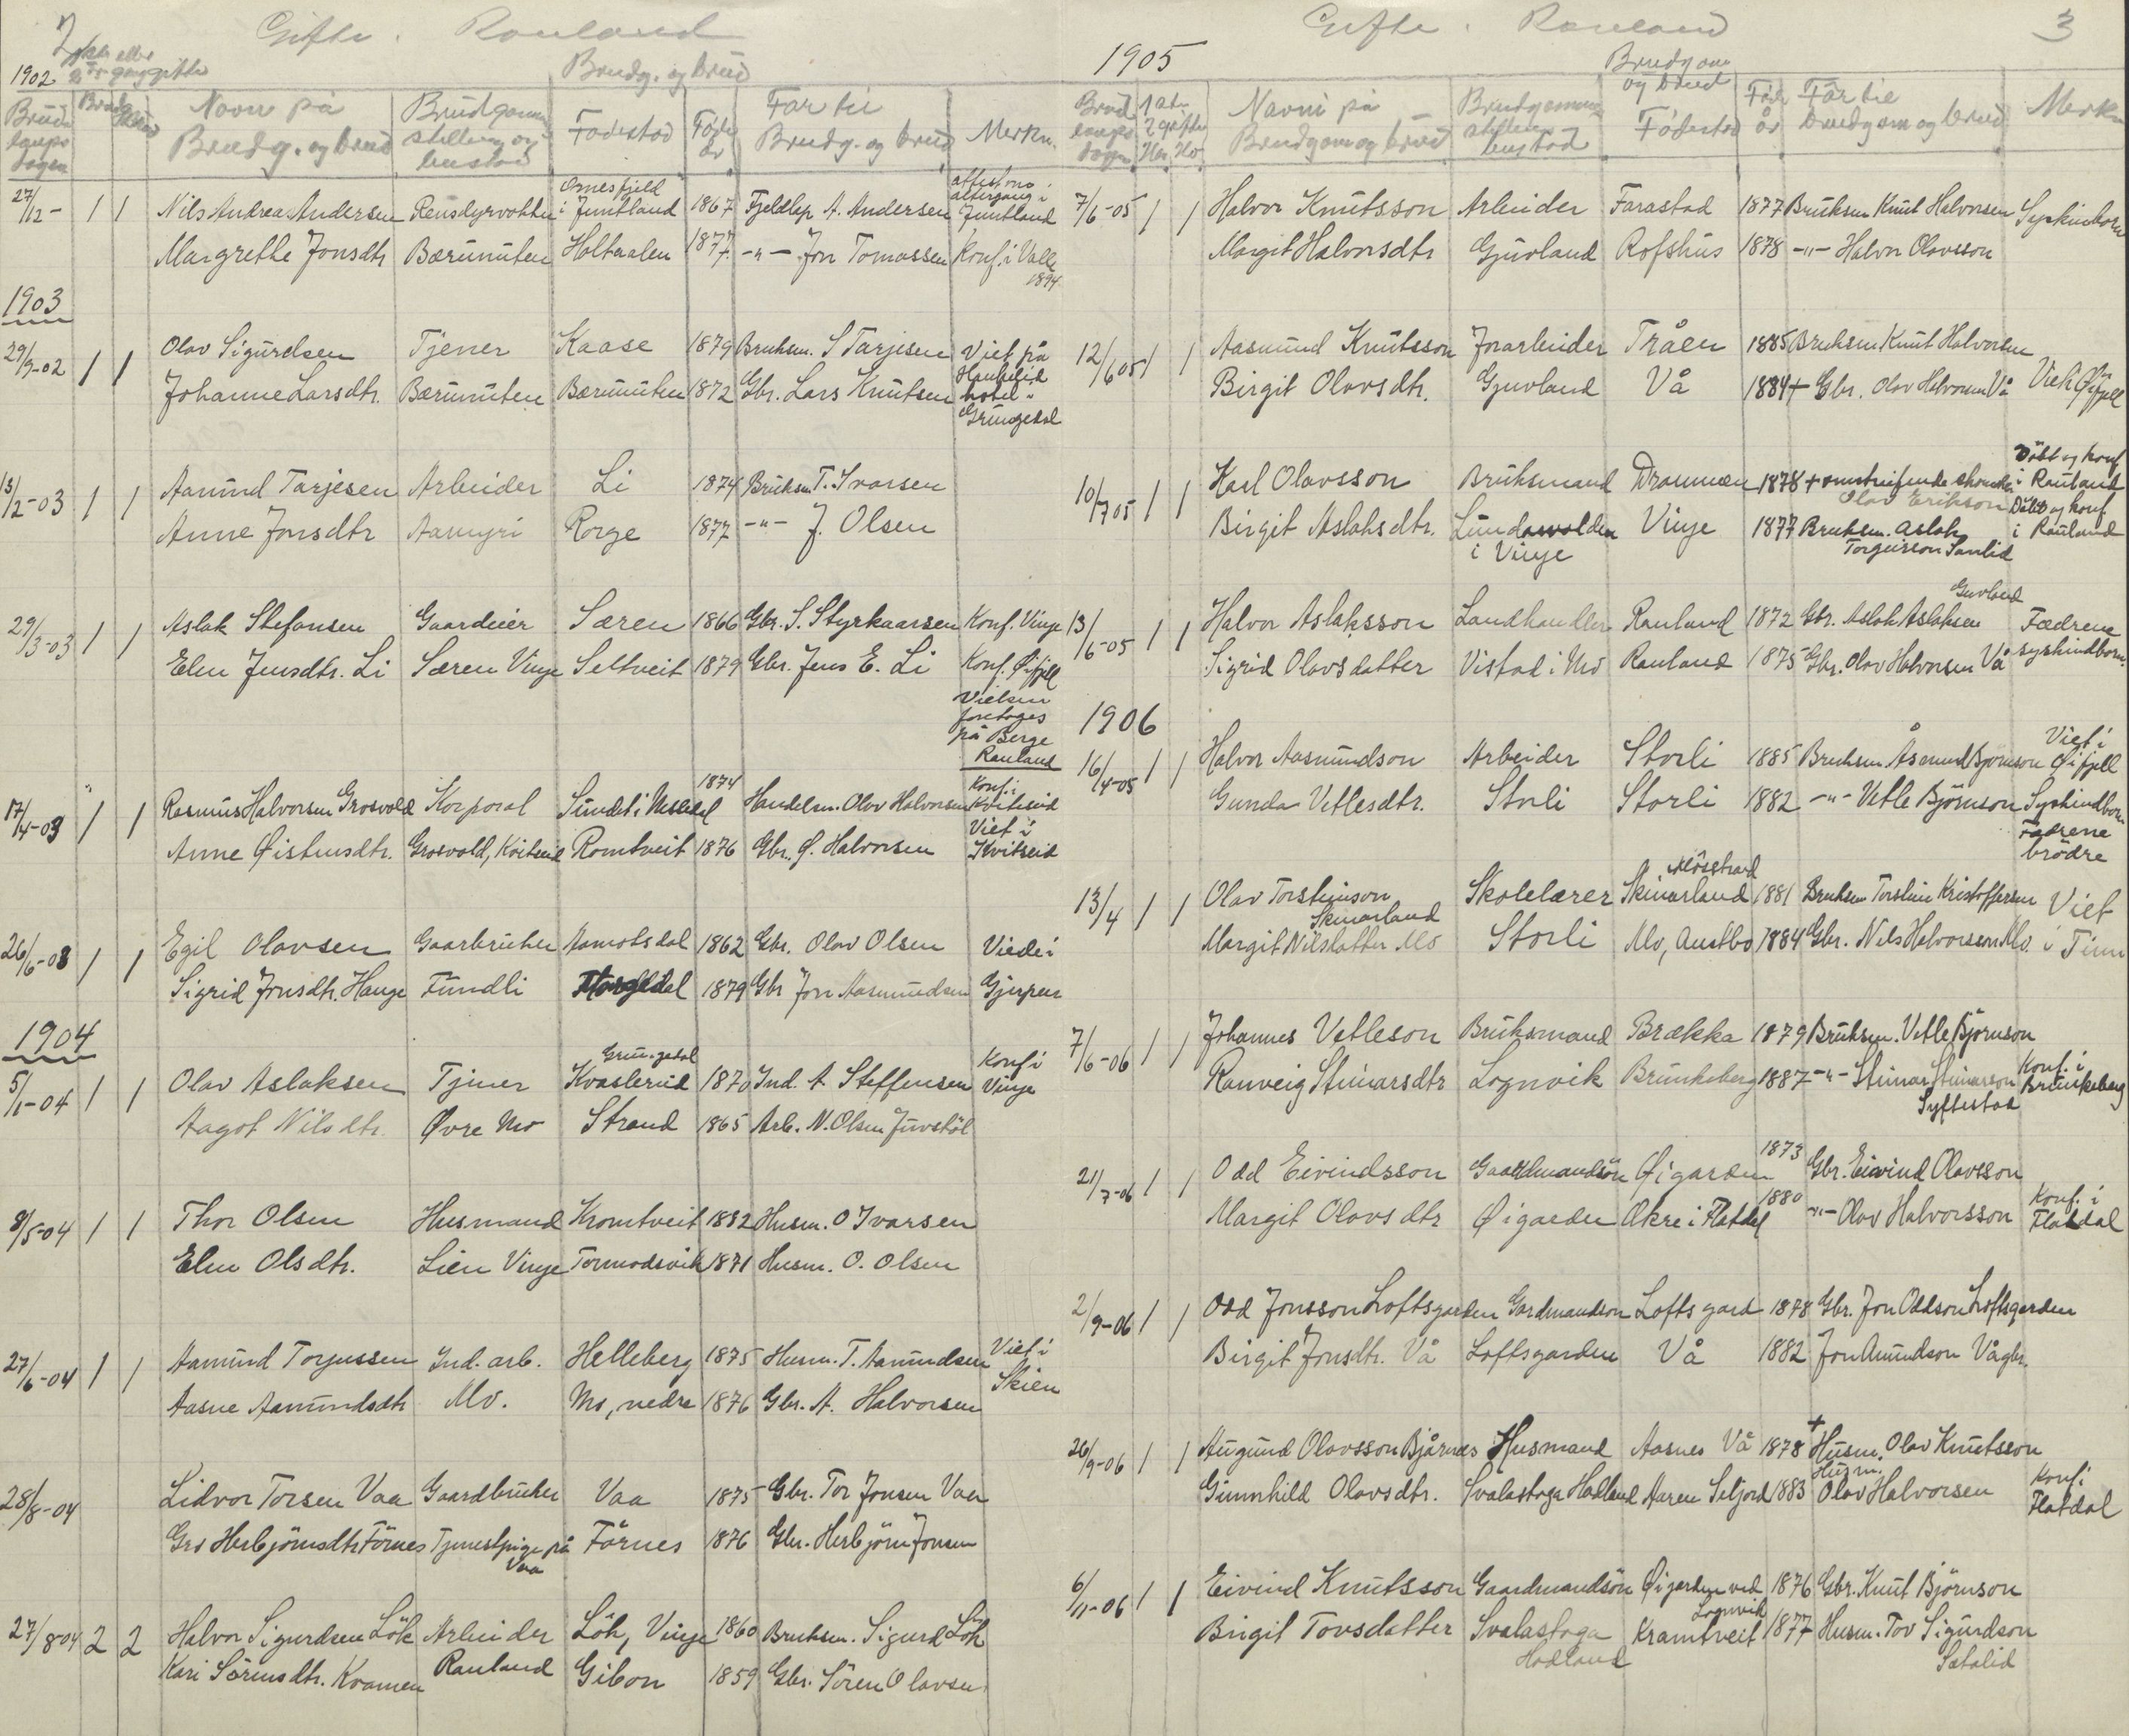 2 Gifte. Rauland
1902 1ste eller 2den gang gifte
Brudg. og brud
Navn på Brudg. og brud
Brudgommens stilling og bustad
Fødestad
Føde år
Far til Brudg. og brud
Merkn.
27/12- 1 1 Nils Andrea Andersen Rensdyrvokter i Jemtland 1867 Fjeldlap A. Andersen Jemtland
Margrethe Jonsdtr Bærunuten Holtaalen 1877 -"- Jon Tomassen Konf. i Valle 1894
1903
29/9-02 1 1 Olav Sigurdsen Tjener Kaase 1879 Bruksm. S Tarjesen Viet på
Johanne Larsdtr. Bærunuten Bærunuten 1872 Gbr. Lars Knutsen Haukelid hotel
Grungedal
13/2-03 1 1 Aanund Tarjesen Arbeider Li 1874 Bruksm. T. Ivarsen
Anne Jonsdtr Aamyri Rorge 1877 -"- J. Olsen
29/3-03 1 1 Aslak Stefansen Gaardeier Særen 1866 Gbr. S. Styrkaarsen Konf. Vinje
Elen Jensdtr. Li Særen Vinje Seltveit 1879 Gbr. Jens E. Li Konf. Øifjell
Vielsen
foretoges
på Berge
Rauland
17/4-03 1 1 Rasmus Halvorsen Grosvold Korporal Sundet i Nissedal 1874 Handelsm. Olav Halvorsen Konf. i Kvitseid
Anne Øistensdtr. Grosvold, Kvitseid Romtveit 1876 Gbr. Ø. Halvorsen Viet i Kvitseid
26/6-03 1 1 Egil Olavsen Gaarbruker Aamotsdal 1862 Gbr. Olav Olsen Viede i
Sigrid Jonsdtr. Hauge Fundli 1879 Gbr Jon Aasmundsen Gjerpen
1904
5/1-04 1 1 Olav Aslaksen Tjener Grungedal Kvasleriid 1870 Ind. A Steffensen Konf i Vinje
Aagot Nilsdtr. Øvre Mo Strand 1865 Arb. N. Olsen Juvstöl
8/5-04 1 1 Thor Olsen Husmand Kromtveit 1882 Husm. O Ivarsen
Elen Olsdtr. Lien Vinje Tormodsvik 1871 Husm. O. Olsen
27/6-04 1 1 Aamund Torjussen Ind. arb. Helleberg 1875 Husm. T. Aanundsen Viet i
Aasne Aamundsdtr Mo. Mo, nedre 1876 Gbr. A. Halvorsen Skien
28/8-04 Lidvor Torsen Vaa Gaardbruker Vaa 1875 Gbr. Tor Jonsen Vaa
Gro Herbjörnsdtr Förnes Tjenestpige på Vaa Förnes 1876 Gbr. Herbjörn Jonsen
27/8-04 2 2 Halvor Sigurdsen Lök Arbeider Lök, Vinje 1860 Bruksm. Sigurd Lök
Kari Sörensdtr. Kvamen Rauland Gibon 1859 Gbr. Sören Olavsen
Gifte. Rauland 3
1905
Brudgom og brud
Navni på Brudgom og brud
Brudgommens stilling bustad
Fødestad
Føde år
Far til brudgom og brud
Merkn
7/6-05 1 1 Halvor Knutsson Arbeider Farastad 1877 Bruksm Knut Halvorsen Syskinborn
Margit Halvorsdtr Gjuvland Rofshus 1878 -"- Halvor Olavsson
12/6 05 1 1 Aasmund Knutsson Jorarbeider Tråen 1885 Bruksm Knut Halvorsen
Birgit Olavsdtr. Gjuvland Vå 1884 + Gbr. Olav Halvorsen Vå Viet i Øifjell
10/7 05 1 1 Karl Olavsson Bruksmand Drammen 1878 + omstreifende skomaker Döbt og konf i Rauland
Olav Erikson
Birgit Aslaksdtr. Lundsvolden i Vinje Vinje 1877 Bruksm. Aslak Torgeirson Sanlid Döbt og konf i Rauland
13/6-05 1 1 Halvor Aslaksson Landhandler Rauland 1872 Gbr. Aslak Aslaksen Guvland Fædrene
Sigrid Olavsdatter Vistad i Mo Rauland 1875 Gbr. Olav Halvorsen Vå syskindborn.
1906
16/4-05 1 1 Halvor Aasmundson Arbeider Storli 1885 Bruksm. Åsmund Bjornson Viet i Øifjell
Gunda Vetlesdtr. Storli Storli 1882 -"- Vetle Björnson Syskindborn
Fædrene
brödre
13/4 1 1 Olav Torsteinson Skinarland Skolelærer Mösstrand Skinarland 1881 Bruksm Torstein Kristoffersen Viet
Margit Nilsdatter Mo Storli Mo, Austbo 1884 Gbr. Nils Halvorsen Mo. i Tinn
7/6-06 1 1 Johannes Vetleson Bruksmand Brækka 1879 Bruksm. Vetle Bjørnson
Ranveig Steinarsdtr Lognvik Brunkeberg 1887 -"- Steinar Steinarson Syftestad Konf. i Brunkeberg
21/7-06 1 1 Odd Eivindsson Gaardmandsön Øigarden 1873 Gbr. Eivind Olavsson
Margit Olavsdtr Øigarden Åkre i Flatdal 1880 -"- Olav Halvorsson Konf. i Flatdal
2/9-06 1 1 Odd Jonsson Loftsgarden Gardmandson Loftsgard 1878 Gbr. Jon Oddson Loftsgarden
Birgit Jonsdtr. Vå Loftsgarden Vå 1882 Jon Amundson Vågbr.
26/9-06 1 1 Augund Olavsson Bjårnes Husmand Aasnes Vå 1878 + Husm. Olav Knutsson
Gunnhild Olavsdtr. Svalastoga Hadland Aaren Seljord 1883 Husm. Olav Halvorsen Konf i Flatdal
6/11-06 1 1 Eivind Knutsson Gaardmandsön Øigarden ved Lognvik 1876 Gbr. Knut Björnson
Birgit Torsdatter Svalastoga Hadland Kramtveit 1877 Husm. Tov Sigurdson
Satalid